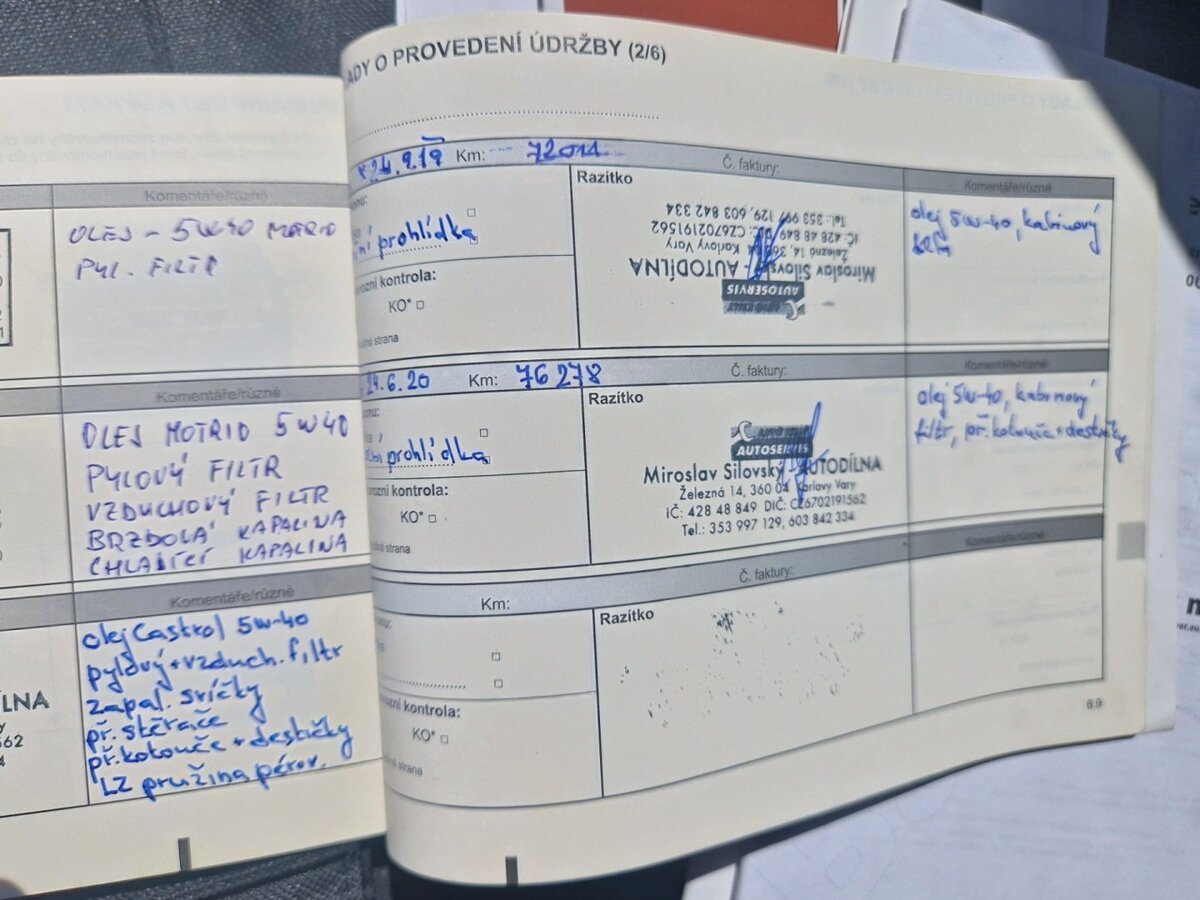 Komentáře/různé
OLEJ - 5W40 MOTRIO
PYL. FILTR
Komentáře/různé
OLEJ MOTRIO 5W40
PYLOVÝ FILTR
VZDUCHOVÝ FILTR
BRZDOLÁ KAPALINA
CHLADÍCÍ KAPALINA
Komentáře/různé
olej Castrol 5w-40
pylový+vzduch. filtr
zapal. svíčky
př. stěrače
př. kotouče + destičky
LZ pružina pérov.
LNA
562
ADY O PROVEDENÍ ÚDRŽBY (2/6)
24.9.19 Km: 72011 Č. faktury: Komentáře/různé
prohlídka
ozní kontrola:
KO*
strana
Razítko
AUTOSERVIS
Miroslav Silovský - AUTODÍLNA
Železná 14, 360 Karlovy Vary
IČ: 428 48 849 CZ6702191562
Tel.: 353 997 129, 603 842 334
olej 5w-40, kabinový
24.6.20 Km: 76 278 Č. faktury: Komentáře/různé
prohlídka
ozní kontrola:
KO*
strana
Razítko
AUTOSERVIS
Miroslav Silovský - AUTODÍLNA
Železná 14, 360 04 Karlovy Vary
IČ: 428 48 849 DIČ: CZ6702191562
Tel.: 353 997 129, 603 842 334
olej 5w-40, kabinový
filtr, př. kotouče + destičky
Km: Č. faktury: Komentáře/různé
ozní kontrola:
KO*
strana
Razítko
6.9